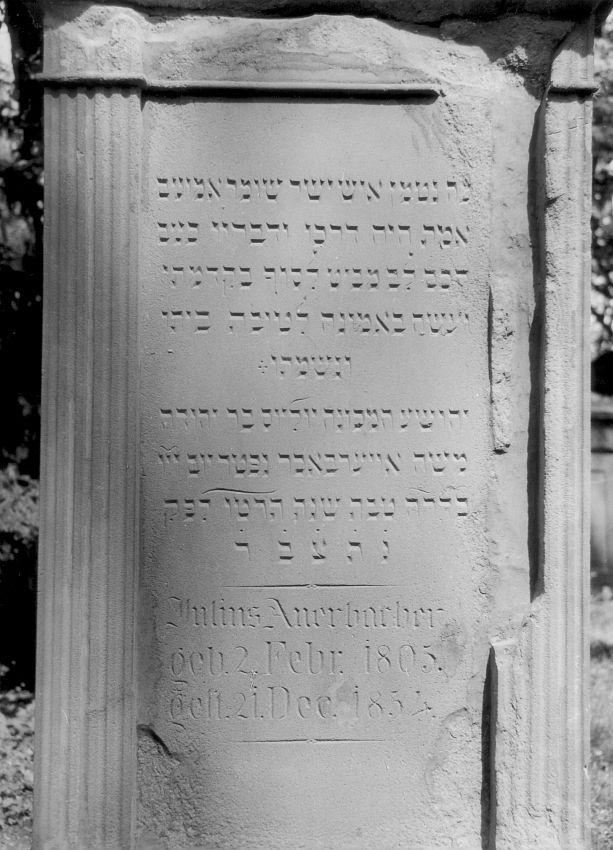 פה נטמן איש ישר שומר אמנים
אמת היה דרכו ודבריו כנים
חכם לב מביט לסוף בקדמתו
ויעשה באמונה לטובת ביתו
ונשמתו
יהושע המכונה יוליוס בר יהודה
משה אויערבאכר נפטר יום
בדר״ח טבת שנה הרטו לפק
נ ת צ ב ה
Julius Auerbacher
geb. 2. Febr. 1805.
gest. 21. Dec. 1854.